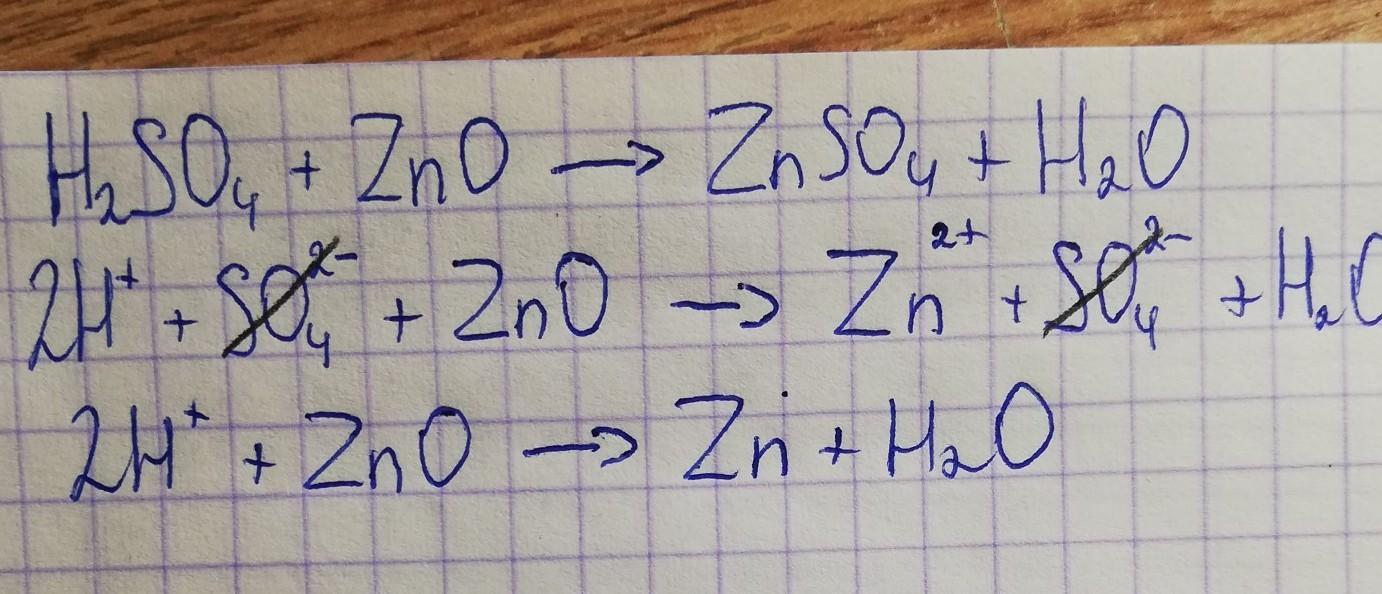 H₂SO₄ + ZnO → ZnSO₄ + H₂O
2H⁺ + SO₄²⁻ + ZnO → Zn²⁺ + SO₄²⁻ + H₂O
2H⁺ + ZnO → Zn + H₂O